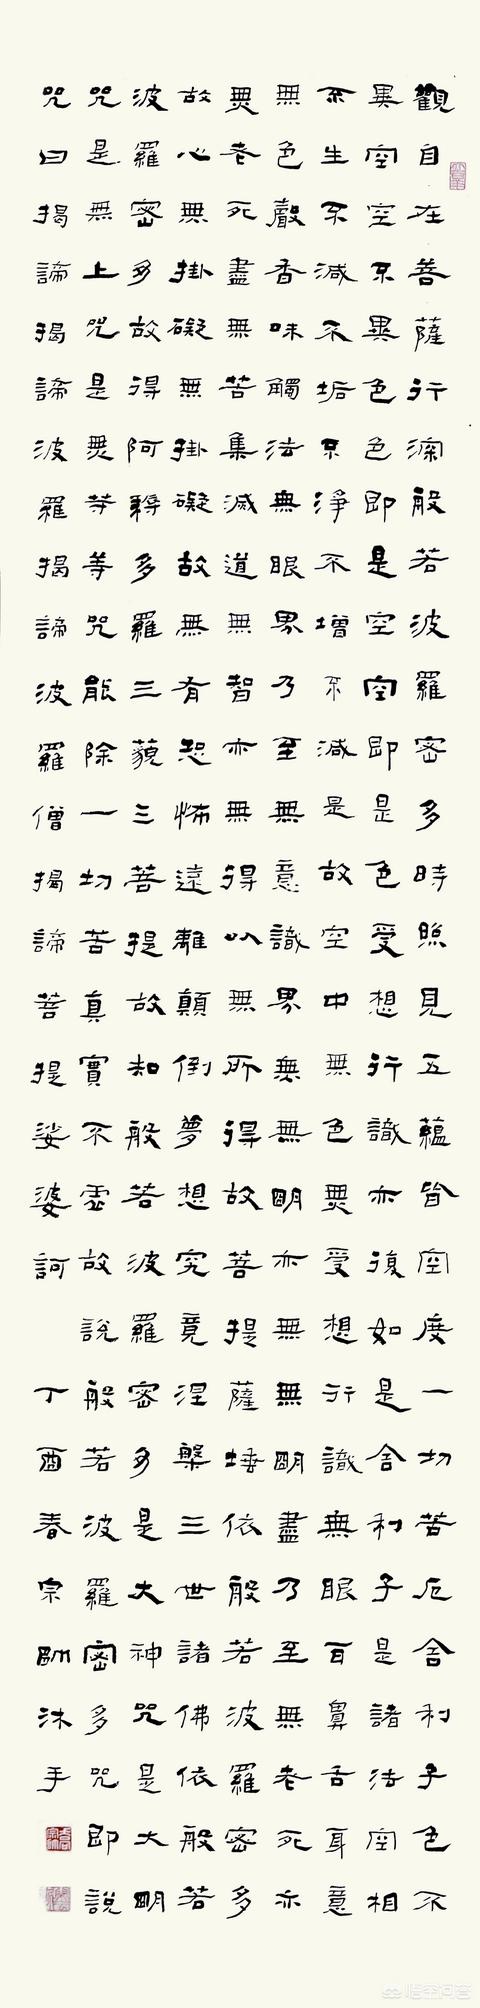 觀自在菩薩行深般若波羅密多時照見五蘊皆空度一切苦厄舍利子色不
異空空不異色色即是空空即是色受想行識亦復如是舍利子是諸法空相
不生不滅不垢不淨不增不減是故空中無色無受想行識無眼耳鼻舌身意
無色聲香味觸法無眼界乃至無意識界無無明亦無無明盡乃至無老死亦
無老死盡無苦集滅道無智亦無得以無所得故菩提薩埵依般若波羅密多
故心無掛礙無掛礙故無有恐怖遠離顛倒夢想究竟涅槃三世諸佛依般若
波羅密多故得阿耨多羅三藐三菩提故知般若波羅密多是大神咒是大明
咒是無上咒是無等等咒能除一切苦真實不虛故說般若波羅密多咒即說
咒曰揭諦揭諦波羅揭諦波羅僧揭諦菩提娑婆訶
丁酉春宗沐手
悟空问答